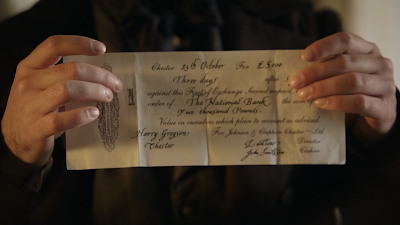 Chester 23th October For £5000
Three days after
against this First of Exchange Second unpaid
order of The National Bank the sum of
Five thousand Pounds.
Value in ourselves which place to account as advised.
Harry Gregson For Johnson & Clapham Chester Ltd
Chester Director
Cashier